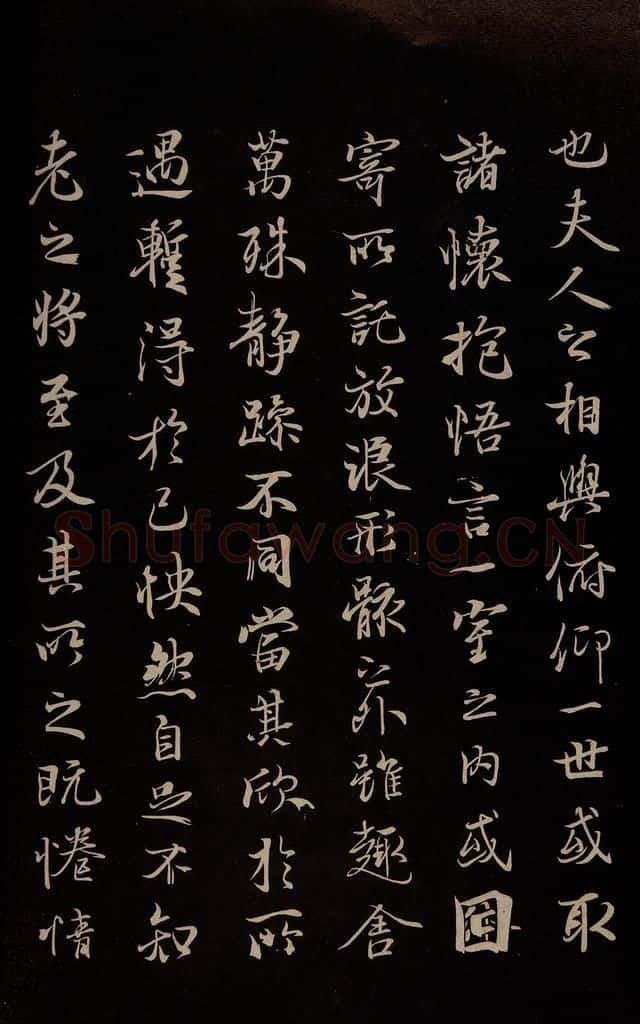 也夫人之相與俯仰一世或取
諸懷抱悟言一室之內或因
寄所託放浪形骸之外雖趣舍
萬殊静躁不同當其欣於所
遇蹔得於己怏然自足不知
老之將至及其所之既惓情
Shufawang.CN